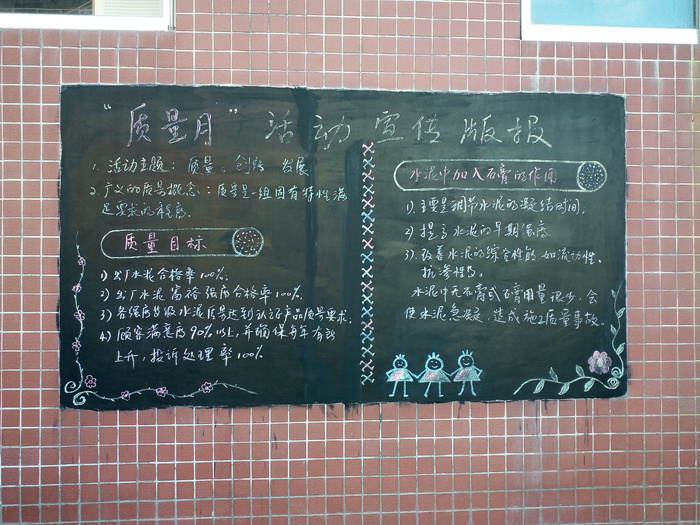 “质量月”活动宣传版报
1. 活动主题：质量、创新 发展
2. 广义的质量概念：质量是一组固有特性满
足要求的程度.
质量目标
1) 出厂水泥合格率100%.
2) 出厂水泥富裕强度合格率100%.
3) 各强度等级水泥质量达到认证产品质量要求.
4) 顾客满意度90%以上,并确保每年有所
上升,投诉处理率100%
水泥中加入石膏的作用
1). 主要是调节水泥的凝结时间.
2) 提高水泥的早期强度.
3). 改善水泥的综合性能如流动性、
抗渗性等.
水泥中无石膏或石膏用量很少,会
使水泥急凝,造成施工质量事故.